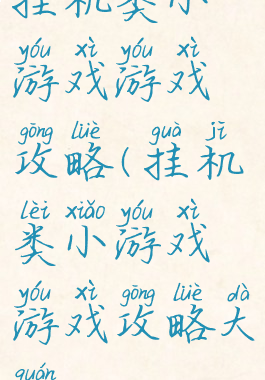 挂机类小
yóu xì yóu xì
游戏游戏
gōng lüè guà jī
攻略(挂机
lèi xiǎo yóu xì
类小游戏
yóu xì gōng lüè dà
游戏攻略大
quán